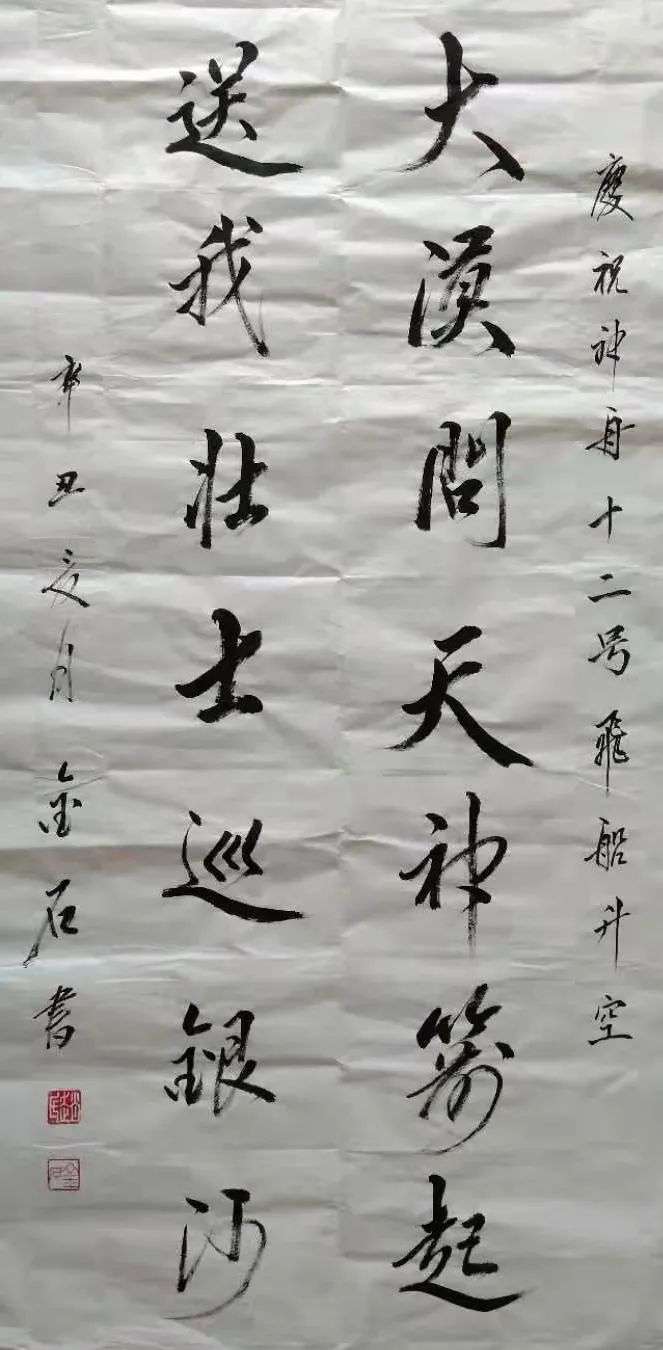 慶祝神舟十二号飛船升空
大漠問天神箭起
送我壯士巡銀沙
辛丑夏月金石書